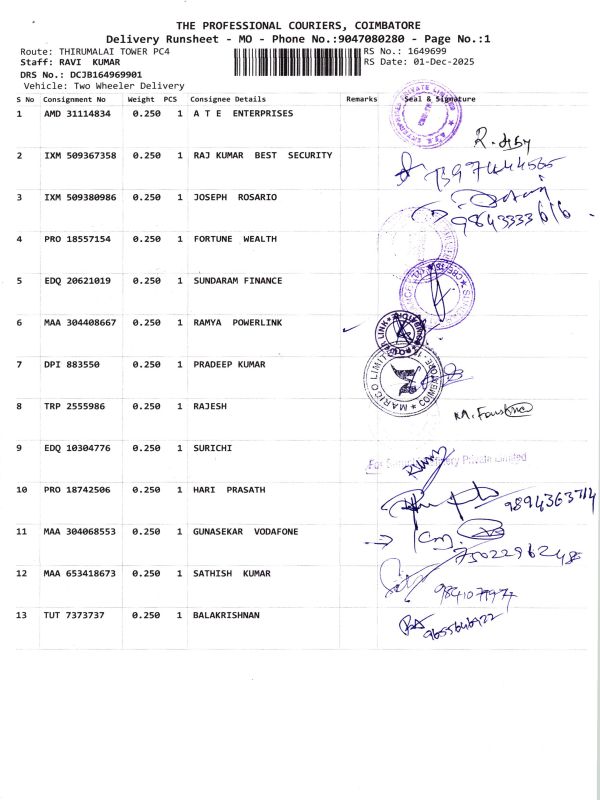 THE PROFESSIONAL COURIERS, COIMBATORE
Delivery Runsheet - MO - Phone No.:9047080280 - Page No.:1
Route: THIRUMALAI TOWER PC4 RS No.: 1649699
Staff: RAVI KUMAR RS Date: 01-Dec-2025
DRS No.: DCJB164969901
Vehicle: Two Wheeler Delivery
S No Consignment No Weight PCS Consignee Details Remarks Seal & Signature
1 AMD 31114834 0.250 1 A T E ENTERPRISES
2 IXM 509367358 0.250 1 RAJ KUMAR BEST SECURITY
3 IXM 509380986 0.250 1 JOSEPH ROSARIO
9843333616
4 PRO 18557154 0.250 1 FORTUNE WEALTH
5 EDQ 20621019 0.250 1 SUNDARAM FINANCE
6 MAA 304408667 0.250 1 RAMYA POWERLINK
7 DPI 883550 0.250 1 PRADEEP KUMAR
MARICO LIMITED COIMBATORE
8 TRP 2555986 0.250 1 RAJESH
9 EDQ 10304776 0.250 1 SURICHI
For Private Limited
10 PRO 18742506 0.250 1 HARI PRASATH
9894363714
11 MAA 304068553 0.250 1 GUNASEKAR VODAFONE
7502296248
12 MAA 653418673 0.250 1 SATHISH KUMAR
13 TUT 7373737 0.250 1 BALAKRISHNAN